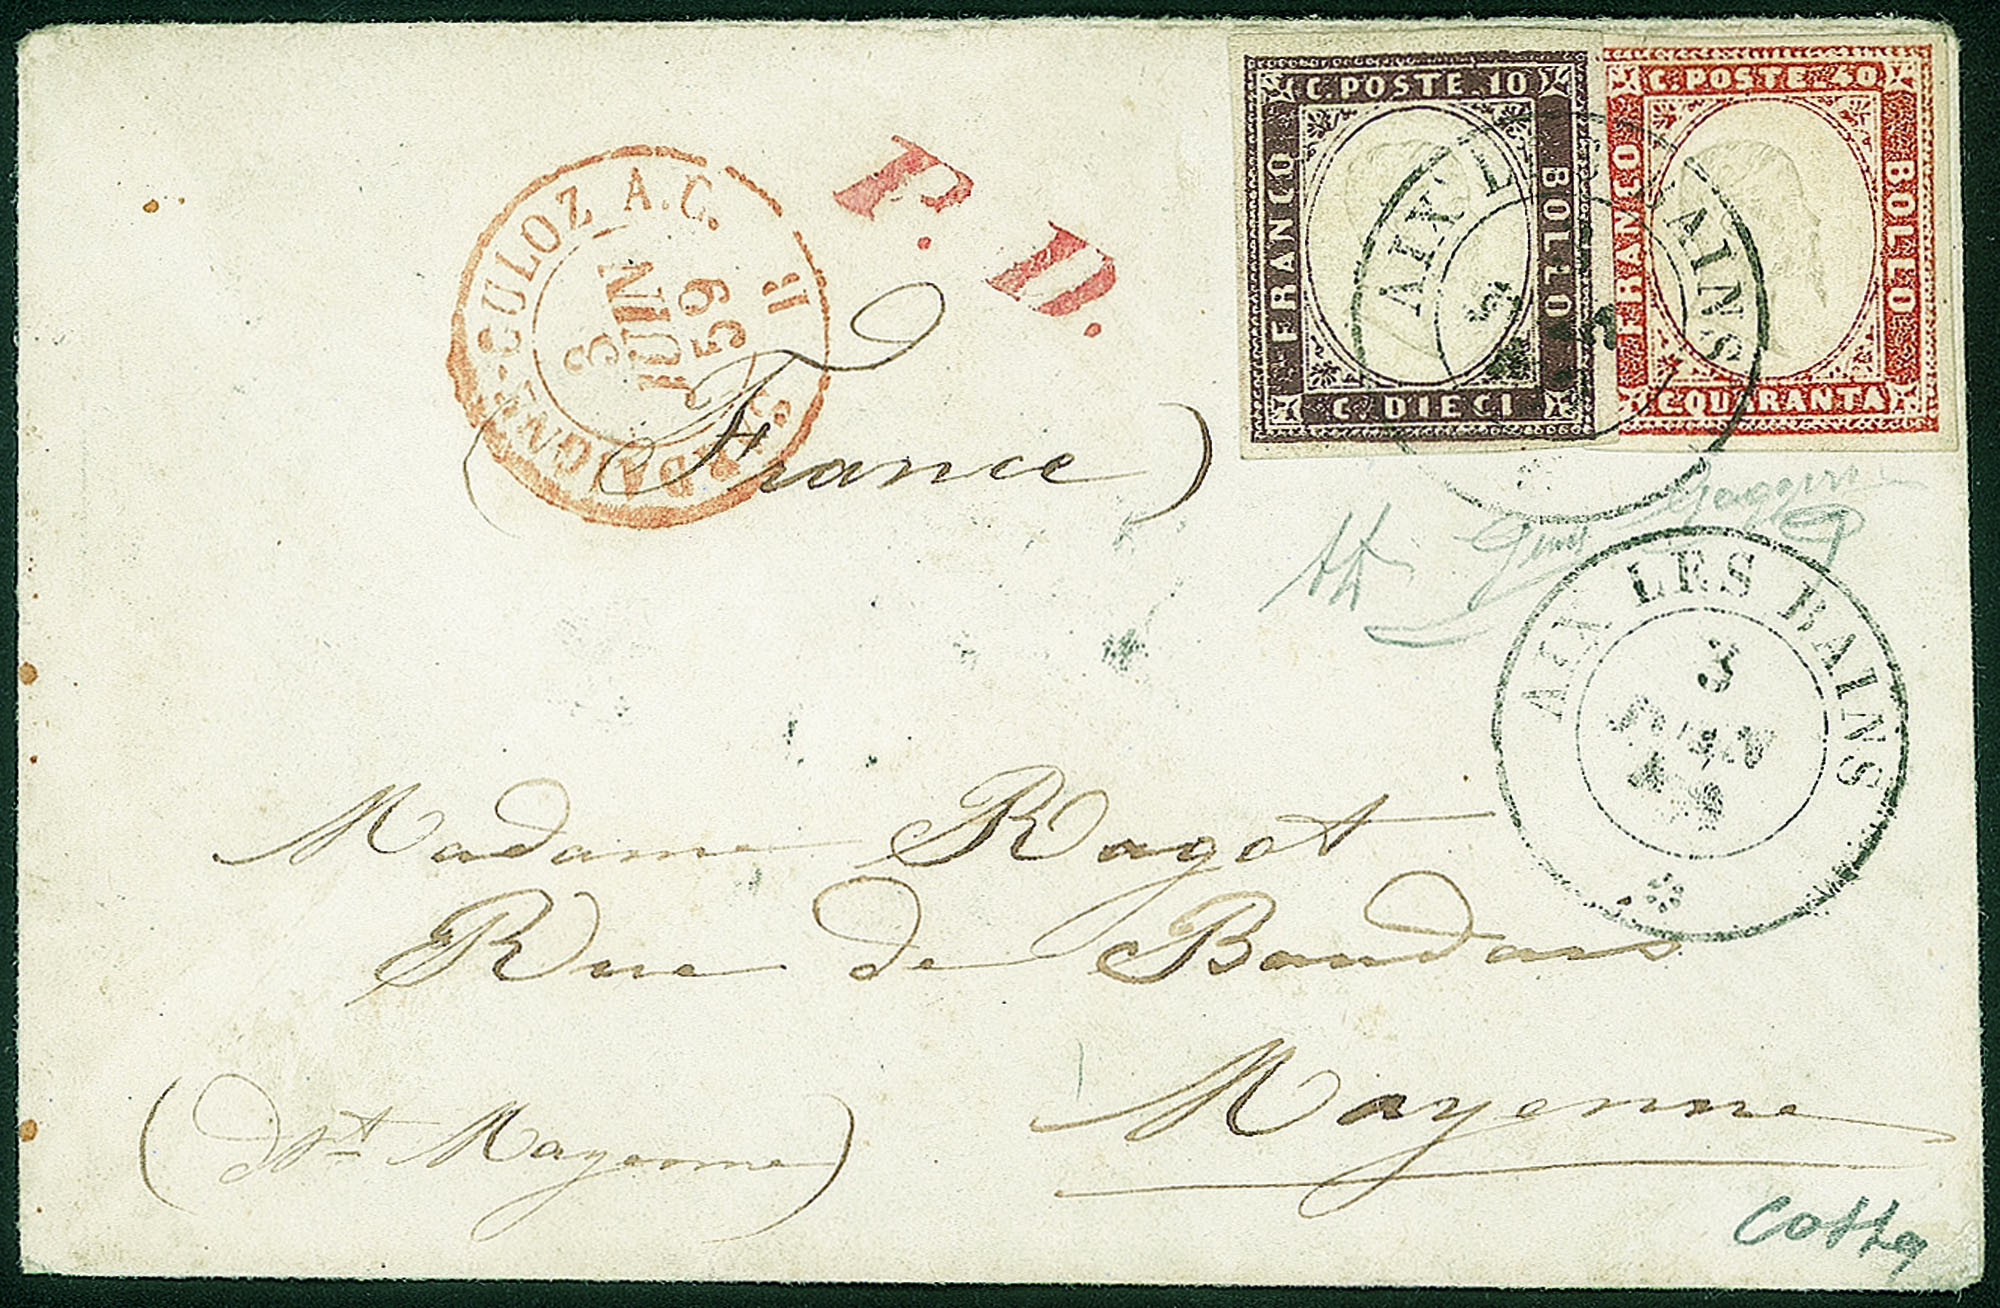 C. POSTE. 10
FRANCO
BOLLO
C. DIECI
C. POSTE. 40
FRANCO
BOLLO
C. QUARANTA
AIX LES BAINS
SARDAIGNE-CULOZ A.C.
3
JUIN
59
R
P. D.
(France)
AIX LES BAINS
3
JUIN
Madame Ragot
Rue de Baudais
Mayenne
(Dt Mayenne)
Cotta